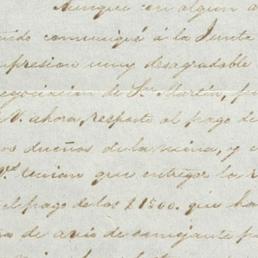 Aunque con algun a
uido comuniqué á la Junta
presion muy desagradable
egociacion de Sn. Martin, fu
a V. ahora, respecto al pago de
os dueños de la mina, y e
Vd. tenian que entregar la
el pago de los $1500. que ha
de de semejante